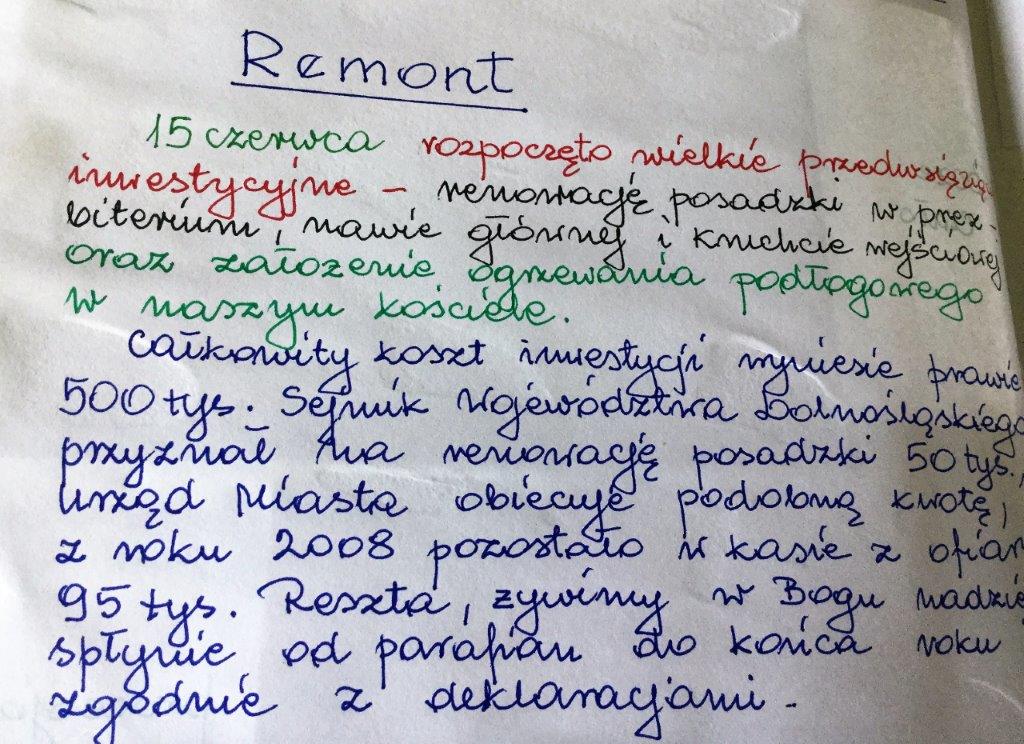 Remont
15 czerwca rozpoczęto wielkie przedwsięzię
inwestycyjne - renowację posadzki w prez-
biterium, nawie głównej i kruchcie wejściowej
oraz założenie ogrzewania podłogowego
w naszym kościele.
Całkowity koszt inwestycji wyniesie prawie
500 tys. Sejmik Województwa Dolnośląskiego
przyznał na renowację posadzki 50 tys.,
Urząd Miasta obiecuje podobną kwotę,
z roku 2008 pozostało w kasie z ofiar
95 tys. Reszta, żywimy w Bogu nadzie
spłynie od parafian do końca roku
zgodnie z deklaracjami.